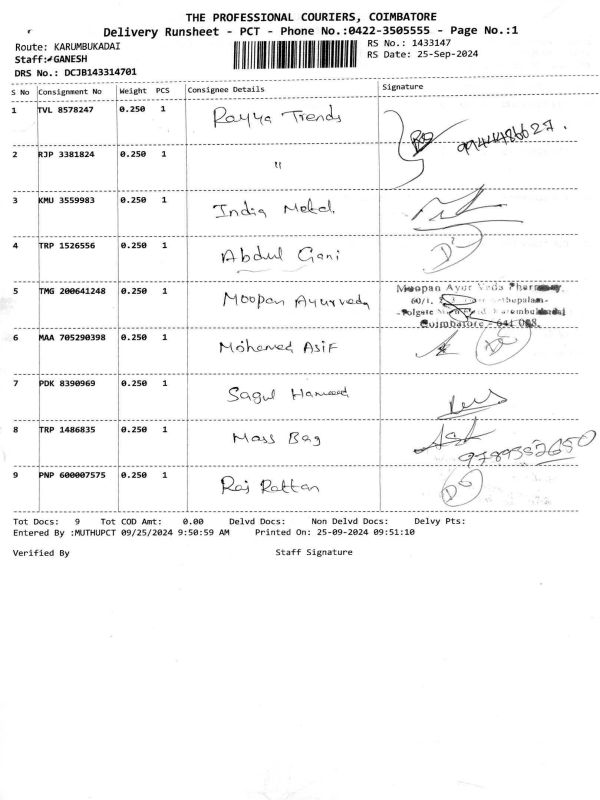 THE PROFESSIONAL COURIERS, COIMBATORE
Delivery Runsheet - PCT - Phone No.:0422-3505555 - Page No.:1
Route: KARUMBUKADAI
RS No.: 1433147
Staff: GANESH
RS Date: 25-Sep-2024
DRS No.: DCJB143314701
S No Consignment No Weight PCS Consignee Details Signature
1 TVL 8578247 0.250 1 Rayya Trends
9944486627.
2 RJP 3381824 0.250 1 "
3 KMU 3559983 0.250 1 India Metal
4 TRP 1526556 0.250 1 Abdul Gani
Moopan Ayur Veda Pharmacy
5 TMG 200641248 0.250 1 Moopan Ayurveda
60/1,
Coimbatore - 641 008.
6 MAA 705290398 0.250 1 Mohamed Asif
7 PDK 8390969 0.250 1 Sagul Hameed
8 TRP 1486835 0.250 1 Mass Bag
9789352650
9 PNP 600007575 0.250 1 Raj Rattan
Tot Docs: 9 Tot COD Amt: 0.00 Delvd Docs: Non Delvd Docs: Delvy Pts:
Entered By :MUTHUPCT 09/25/2024 9:50:59 AM Printed On: 25-09-2024 09:51:10
Verified By Staff Signature